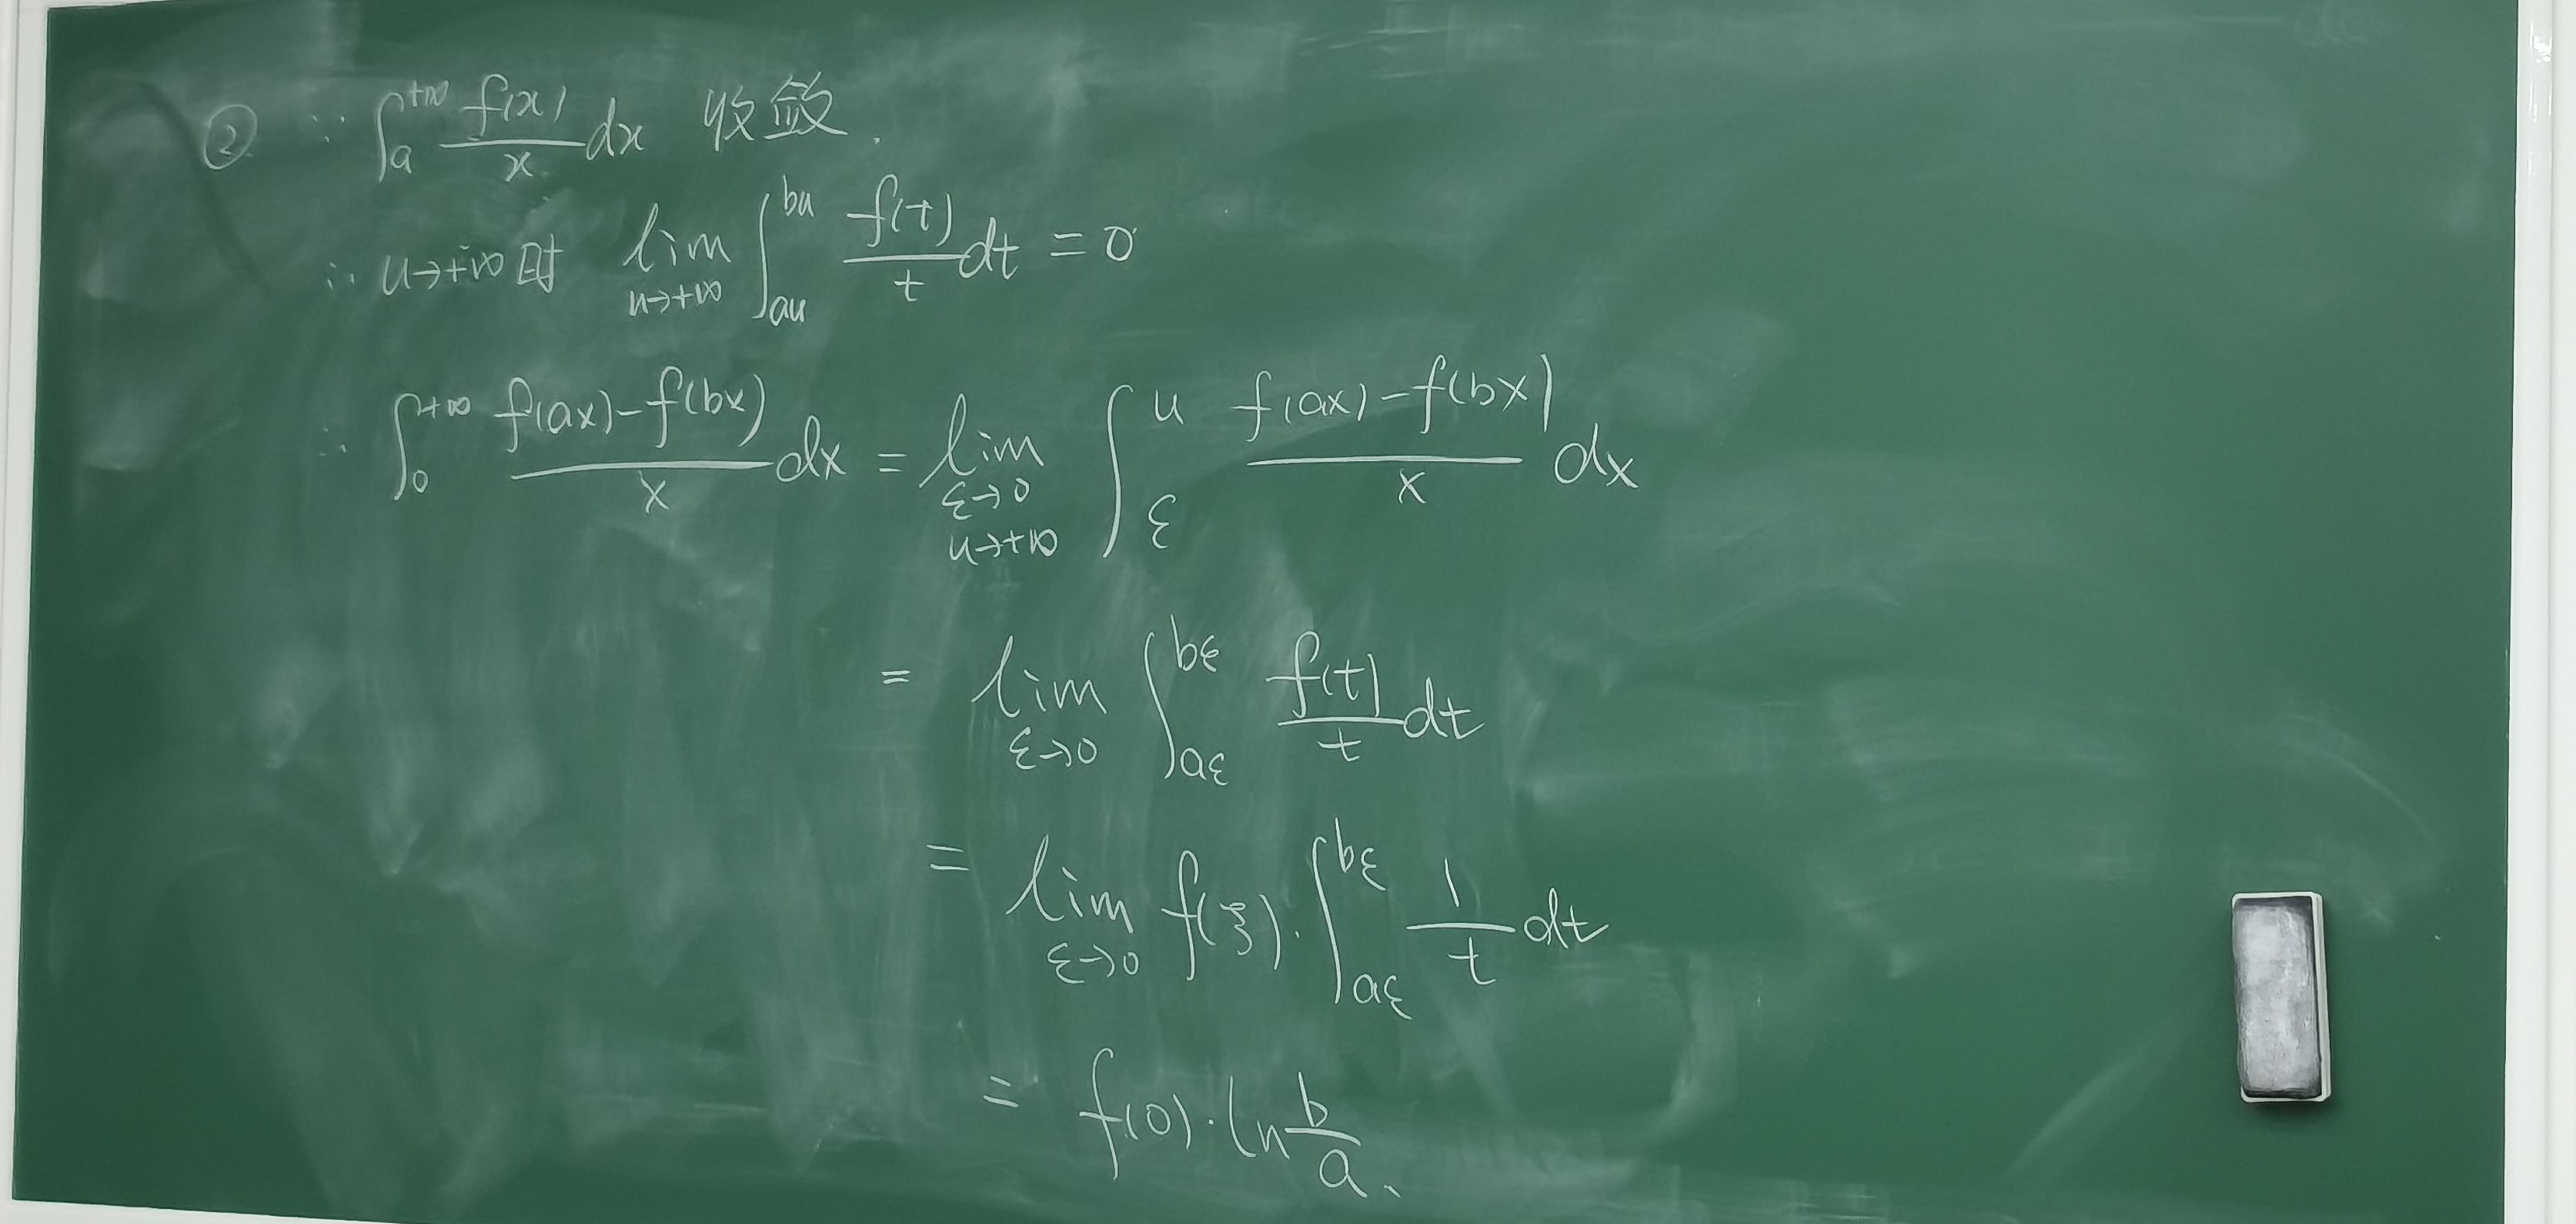 ② ∵ ∫_a^{+∞} f(x)/x dx 收敛.
∴ u→+∞时 lim_{u→+∞} ∫_{au}^{bu} f(t)/t dt = 0
∴ ∫_0^{+∞} (f(ax)-f(bx))/x dx = lim_{ε→0, u→+∞} ∫_ε^u (f(ax)-f(bx))/x dx
= lim_{ε→0} ∫_{aε}^{bε} f(t)/t dt
= lim_{ε→0} f(ξ)·∫_{aε}^{bε} 1/t dt
= f(0)·ln b/a.